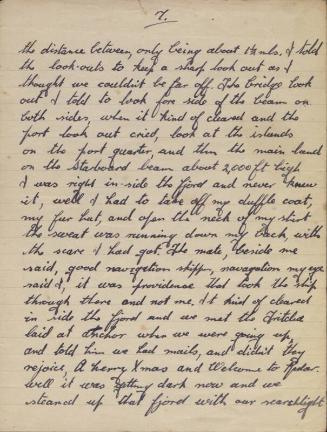 7.
the distance between, only being about 1½ mls. I told
the look-outs to keep a sharp look out as I
thought we couldn't be far off. The bridge look
out I told to look fore side of the beam on
both sides, when it kind of cleared and the
port look out cried, look at the islands
on the port quarter, and then the main land
on the starboard beam about 2,000 ft high
I was right in-side the fjord and never knew
it, well I had to take off my duffle coat,
my fur hat, and open the neck of my shirt
the sweat was running down my back, with
the scare I had got. The mate, beside me
said, good navigation skipper, navagation my eye
said I, it was providence that took the ship
through there and not me. It kind of cleared
in side the fjord and we met the
laid at anchor when we were going up,
and told him we had mails, and didn't they
rejoice, A Merry Xmas and Welcome to
well it was getting dark now and we
steamed up that fjord with our searchlight